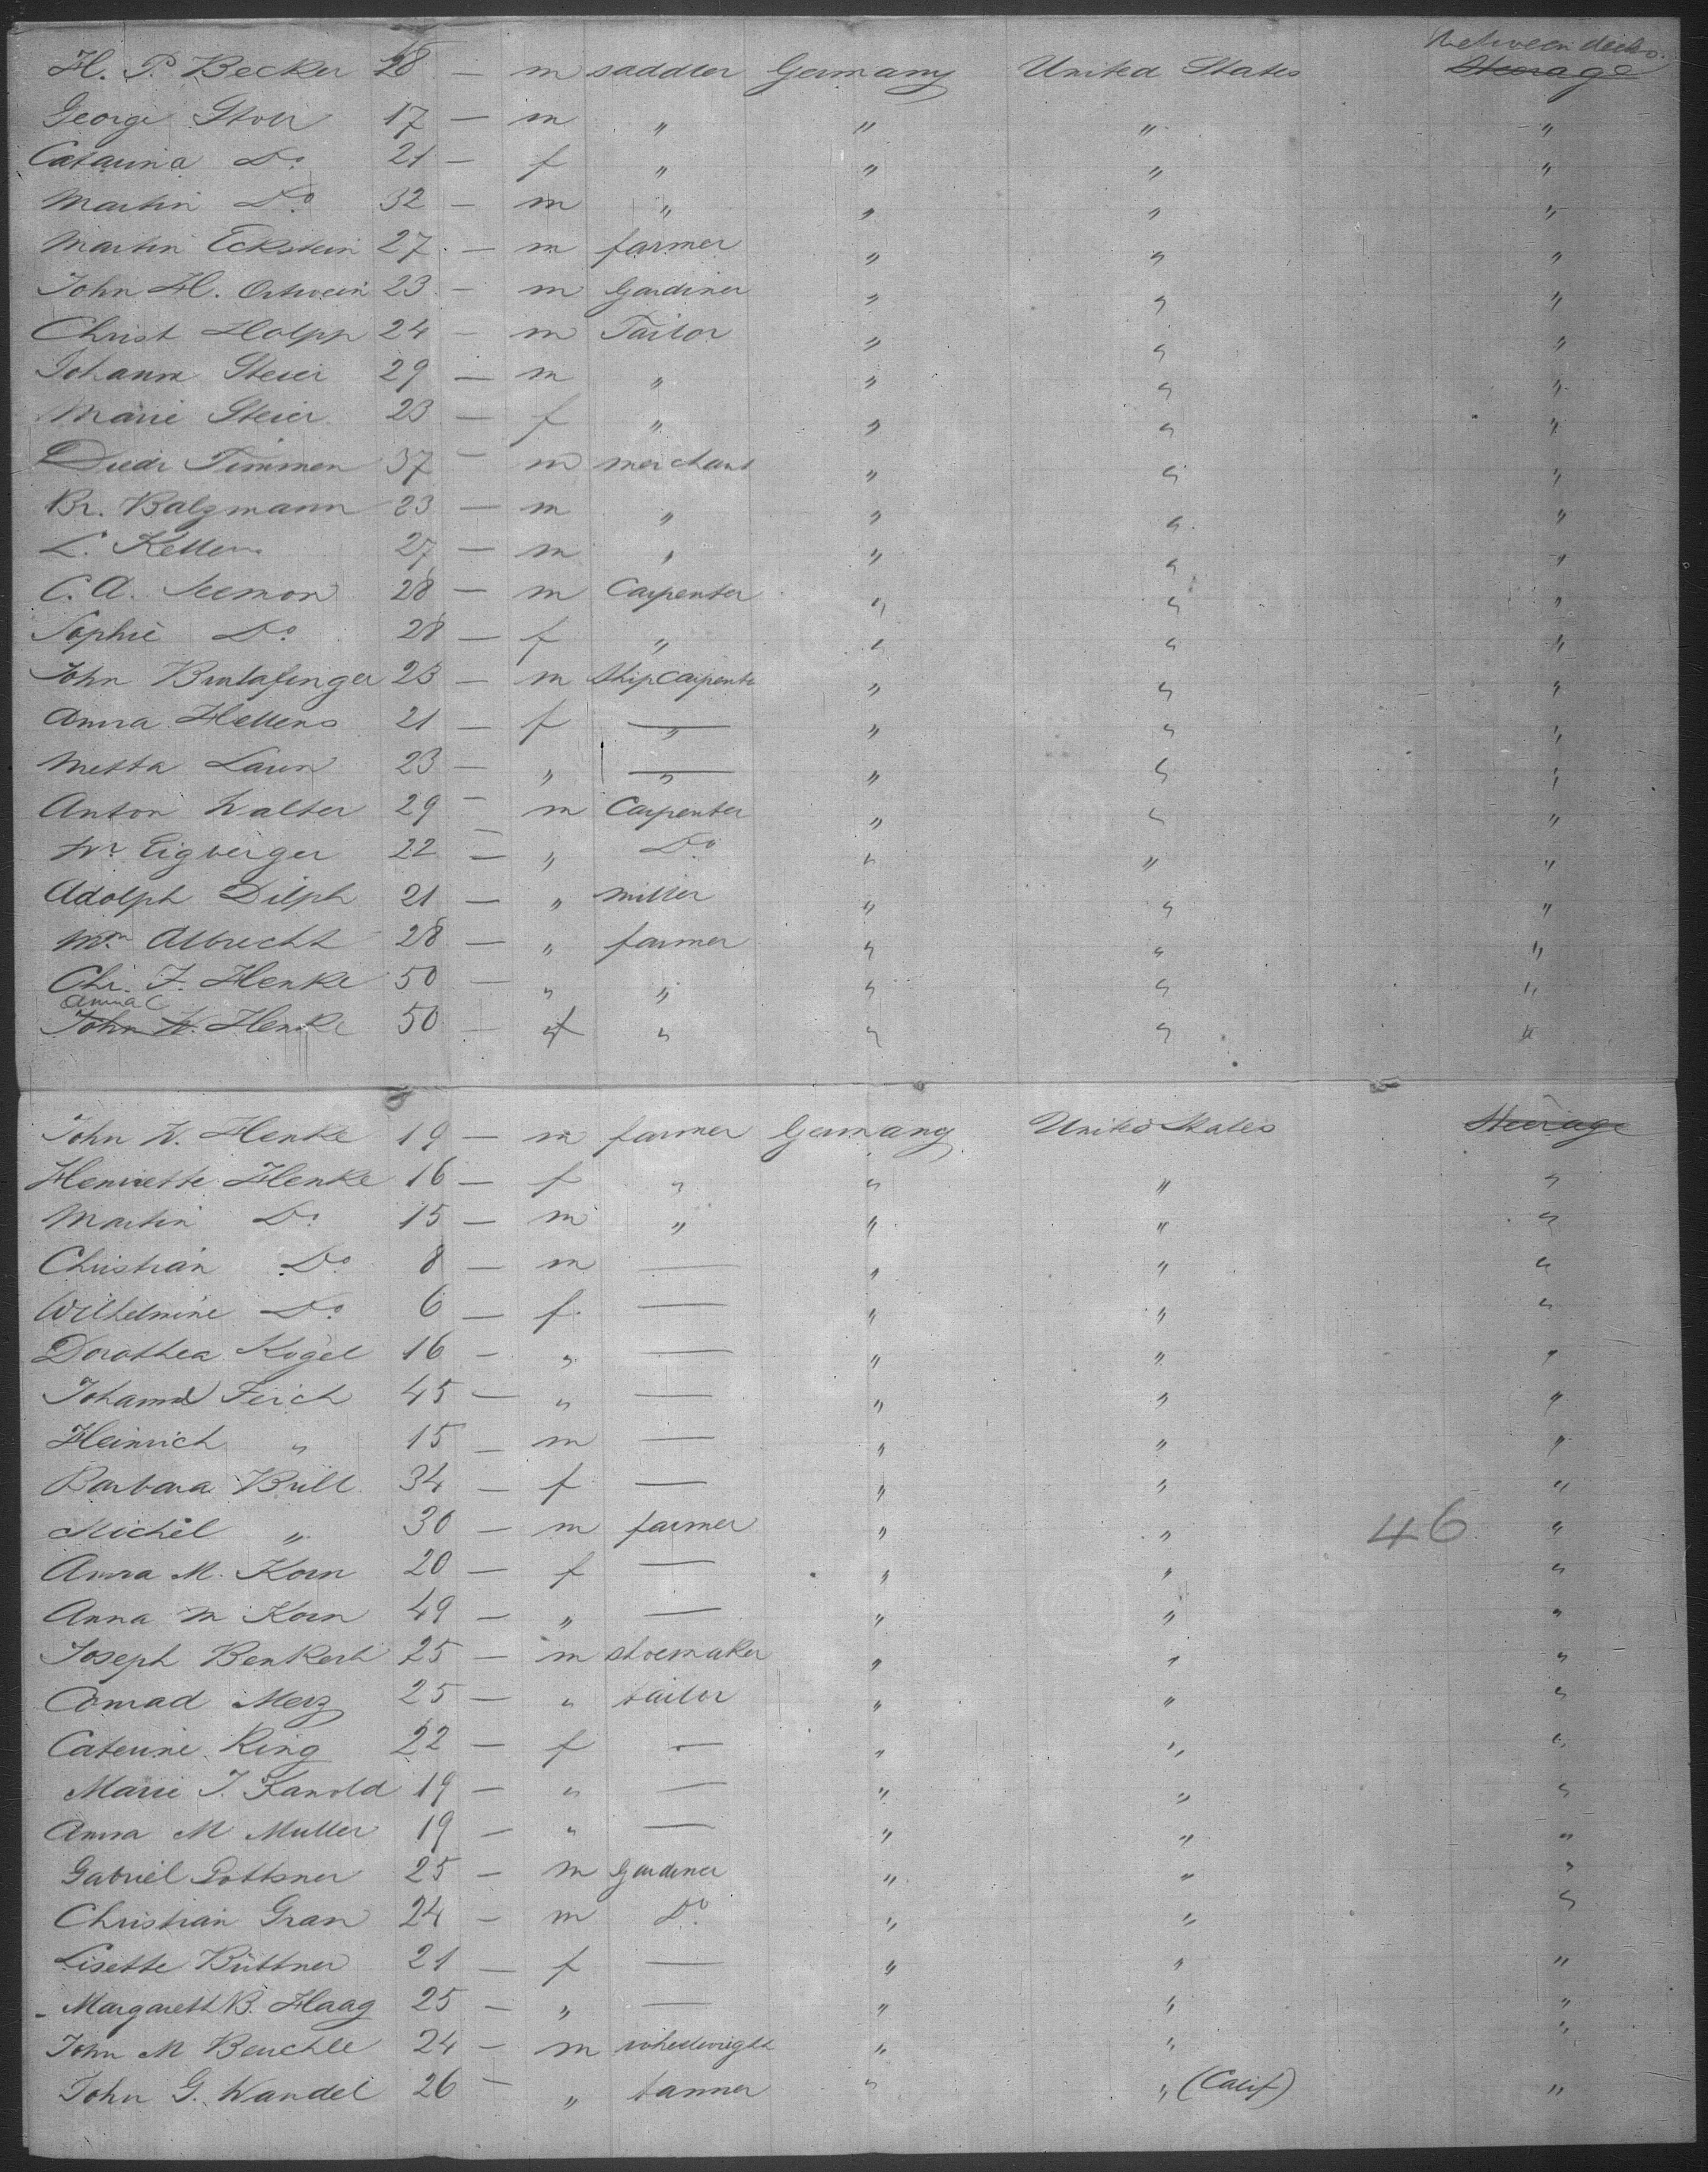 Between decks
H. P. Becker 28 — m saddler Germany United States Steerage
George Stoll 17 — m " " " "
Catarina Do 21 — f " " " "
Martin Do 32 — m " " " "
Martin Eckstein 27 — m farmer " " "
John H. Ortwein 23 — m Gardiner " " "
Christ Holpp 24 — m Tailor " " "
Johann Steier 29 — m " " " "
Marie Steier 23 — f " " " "
Diedr Timmen 37 — m merchant " " "
Br. Balzmann 23 — m " " " "
L. Kellens 27 — m " " " "
C. A. Seemon 28 — m Carpenter " " "
Sophie Do 28 — f " " " "
John 23 — m Shipcarpenter " " "
Anna Hellens 21 — f — " " " "
Metta Laun 23 — " — " " " "
Anton Walter 29 — m Carpenter " " "
Eigberger 22 — " Do " " "
Adolph Dilph 21 — " miller " " "
Wm Albrecht 28 — " farmer " " "
Chr. F. Henke 50 — " " " " "
Anna C
John W. Henke 50 — f " " " "
John W. Henke 19 — m farmer Germany United States Steerage
Henriette Henke 16 — f " " " "
Martin Do 15 — m " " " "
Christian Do 8 — m — " " "
Wilhelmine Do 6 — f — " " "
Dorothea Kogel 16 — " — " " "
Johanna Feich 45 — " — " " "
Heinrich " 15 — m — " " "
Barbara Brill 34 — f — " " "
Michel " 30 — m farmer " " 46 "
Anna M. Korn 20 — f — " " "
Anna M Korn 49 — " — " " "
Joseph Benkert 25 — m shoemaker " " "
Conrad Merz 25 — " tailor " " "
Caterine King 22 — f — " " "
Marie J. Kanold 19 — " — " " "
Anna M Muller 19 — " — " " "
Gabriel Pottsner 25 — m Gardener " " "
Christian Gran 24 — m Do " " "
Lisette Büttner 21 — f — " " "
Margarett B. Haag 25 — " — " " "
John M Beuchle 24 — m wheelwright " " "
John G. Wandel 26 — " tanner " " (Calif) "